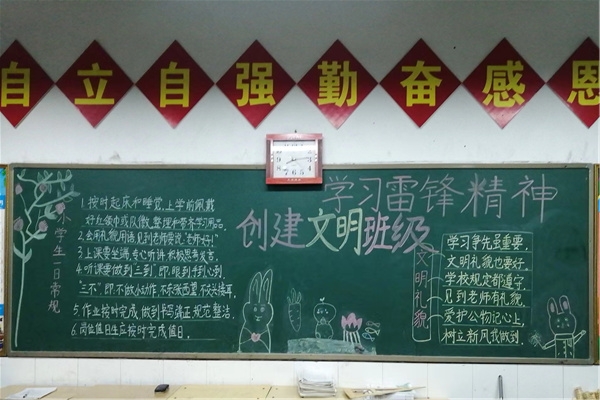 自立自强勤奋感恩
学习雷锋精神
创建文明班级
小学生一日常规
1.按时起床和睡觉,上学前佩戴
好红领巾或队徽,整理和带齐学习用品。
2.会用礼貌用语,见到老师要说:“老师好!”
3.上课要坐端,专心听讲,积极思考发言。
4.听课要做到“三到”,即:眼到手到心到,
“三不”,即:不做小动作不东张西望不交头接耳。
5.作业按时完成,做到书写清正规范整洁。
6.岗位值日生应按时完成值日。
文明礼貌
学习争先虽重要,
文明礼貌也要好。
学校规定都遵守,
见到老师有礼貌,
爱护公物记心上,
树立新风我做到.